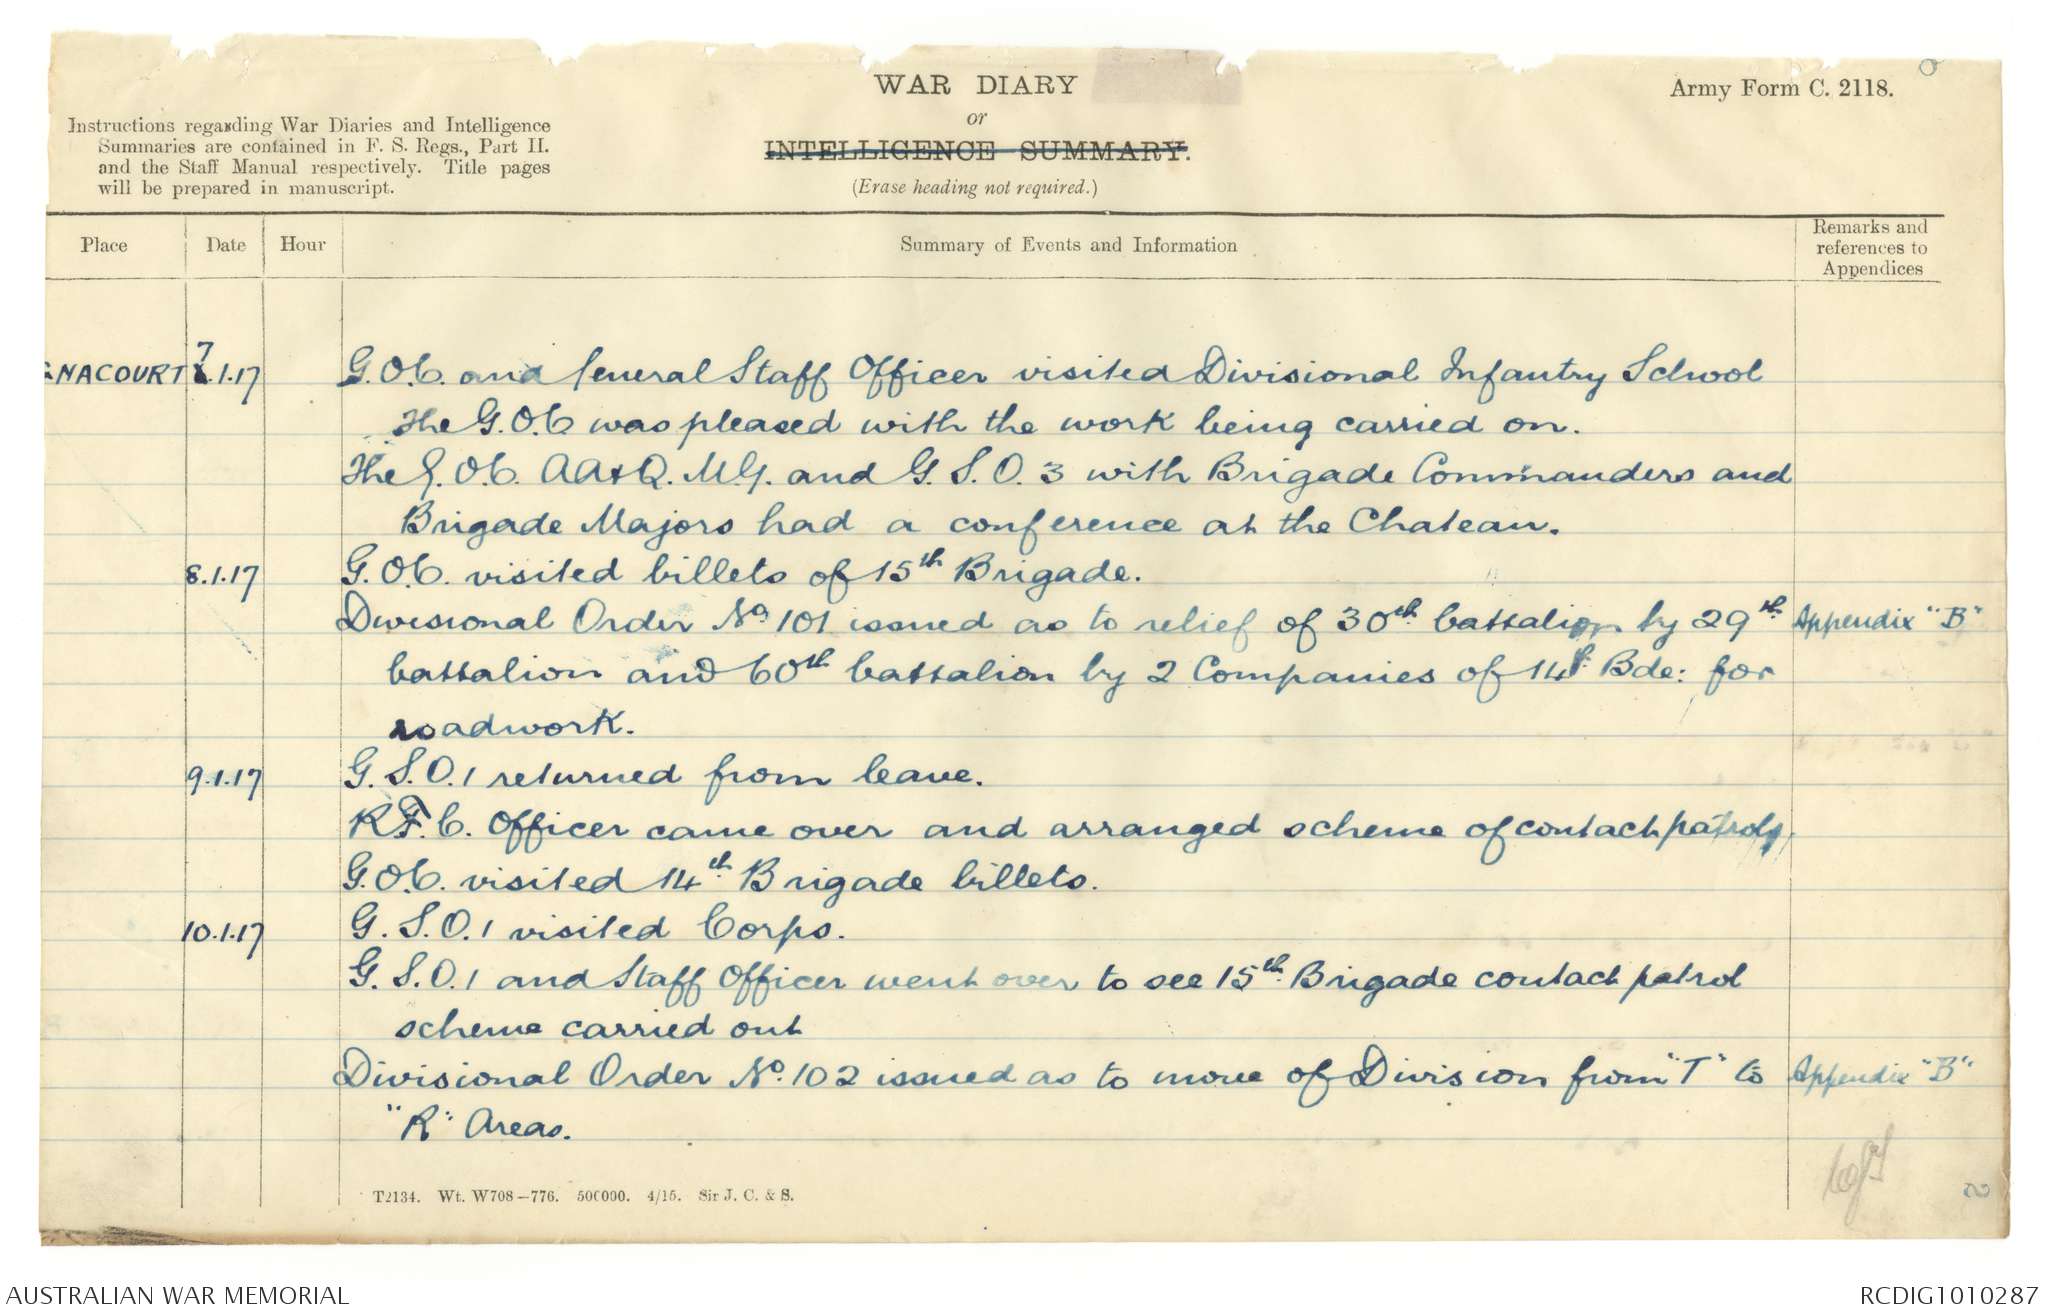 WAR DIARY
or
INTELLIGENCE SUMMARY.
(Erase heading not required.)
Army Form C. 2118.
Instructions regarding War Diaries and Intelligence
Summaries are contained in F. S. Regs., Part II.
and the Staff Manual respectively. Title pages
will be prepared in manuscript.
Place Date Hour Summary of Events and Information Remarks and references to Appendices
NACOURT 7.1.17 G.O.C. and General Staff Officer visited Divisional Infantry School
The G.O.C was pleased with the work being carried on.
The G.O.C. AA&Q.M.G. and G.S.O.3 with Brigade Commanders and
Brigade Majors had a conference at the Chateau.
8.1.17 G.O.C. visited billets of 15th Brigade.
Divisional Order No 101 issued as to relief of 30th battalion by 29th Appendix "B"
battalion and 60th battalion by 2 Companies of 14th Bde: for
roadwork.
9.1.17 G.S.O.1 returned from leave.
R.F.C. Officer came over and arranged scheme of contact patrols.
G.O.C. visited 14th Brigade billets.
10.1.17 G.S.O.1 visited Corps.
G.S.O.1 and Staff Officer went over to see 15th Brigade contact patrol
scheme carried out
Divisional Order No. 102 issued as to move of Division from "T" to Appendix "B"
"R" Areas.
T2134. Wt. W708-776. 500000. 4/15. Sir J. C. & S.
AUSTRALIAN WAR MEMORIAL
RCDIG1010287